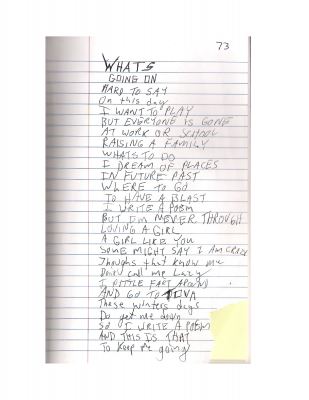 73
WHATS
GOING ON
HARD TO SAY
On this day
I WANT TO PLAY
BUT EVERYONE IS GONE
AT WORK OR SCHOOL
RAISING A FAMILY
WHATS TO DO
I DREAM OF PLACES
IN FUTURE PAST
WHERE TO GO
TO HAVE A BLAST
I WRITE A POEM
BUT I'M NEVER THROUGH
LOVING A GIRL
A GIRL LIKE YOU
SOME MIGHT SAY I AM CRAZY
Thoughs that know me
Don't call me Lazy
I LITTLE FART AROUND
AND GO TO
These winters days
Do get me down
SO I WRITE A POEM
AND THIS IS THAT
To keep me going